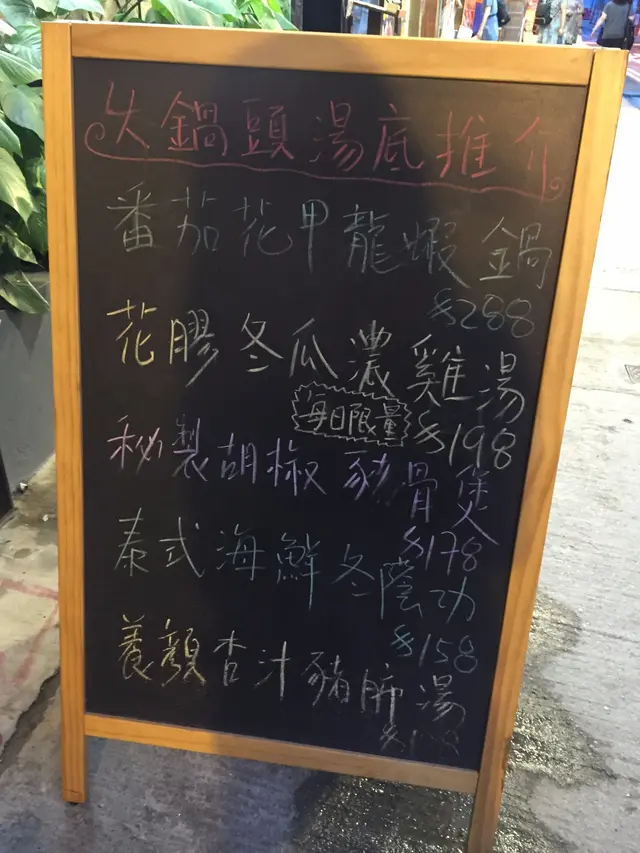 火鍋頭湯底推介
番茄花甲龍蝦鍋
$288
花膠冬瓜濃雞湯
每日限量 $198
秘製胡椒豬骨煲
$178
泰式海鮮冬蔭功
$158
養顏杏汁豬肺湯